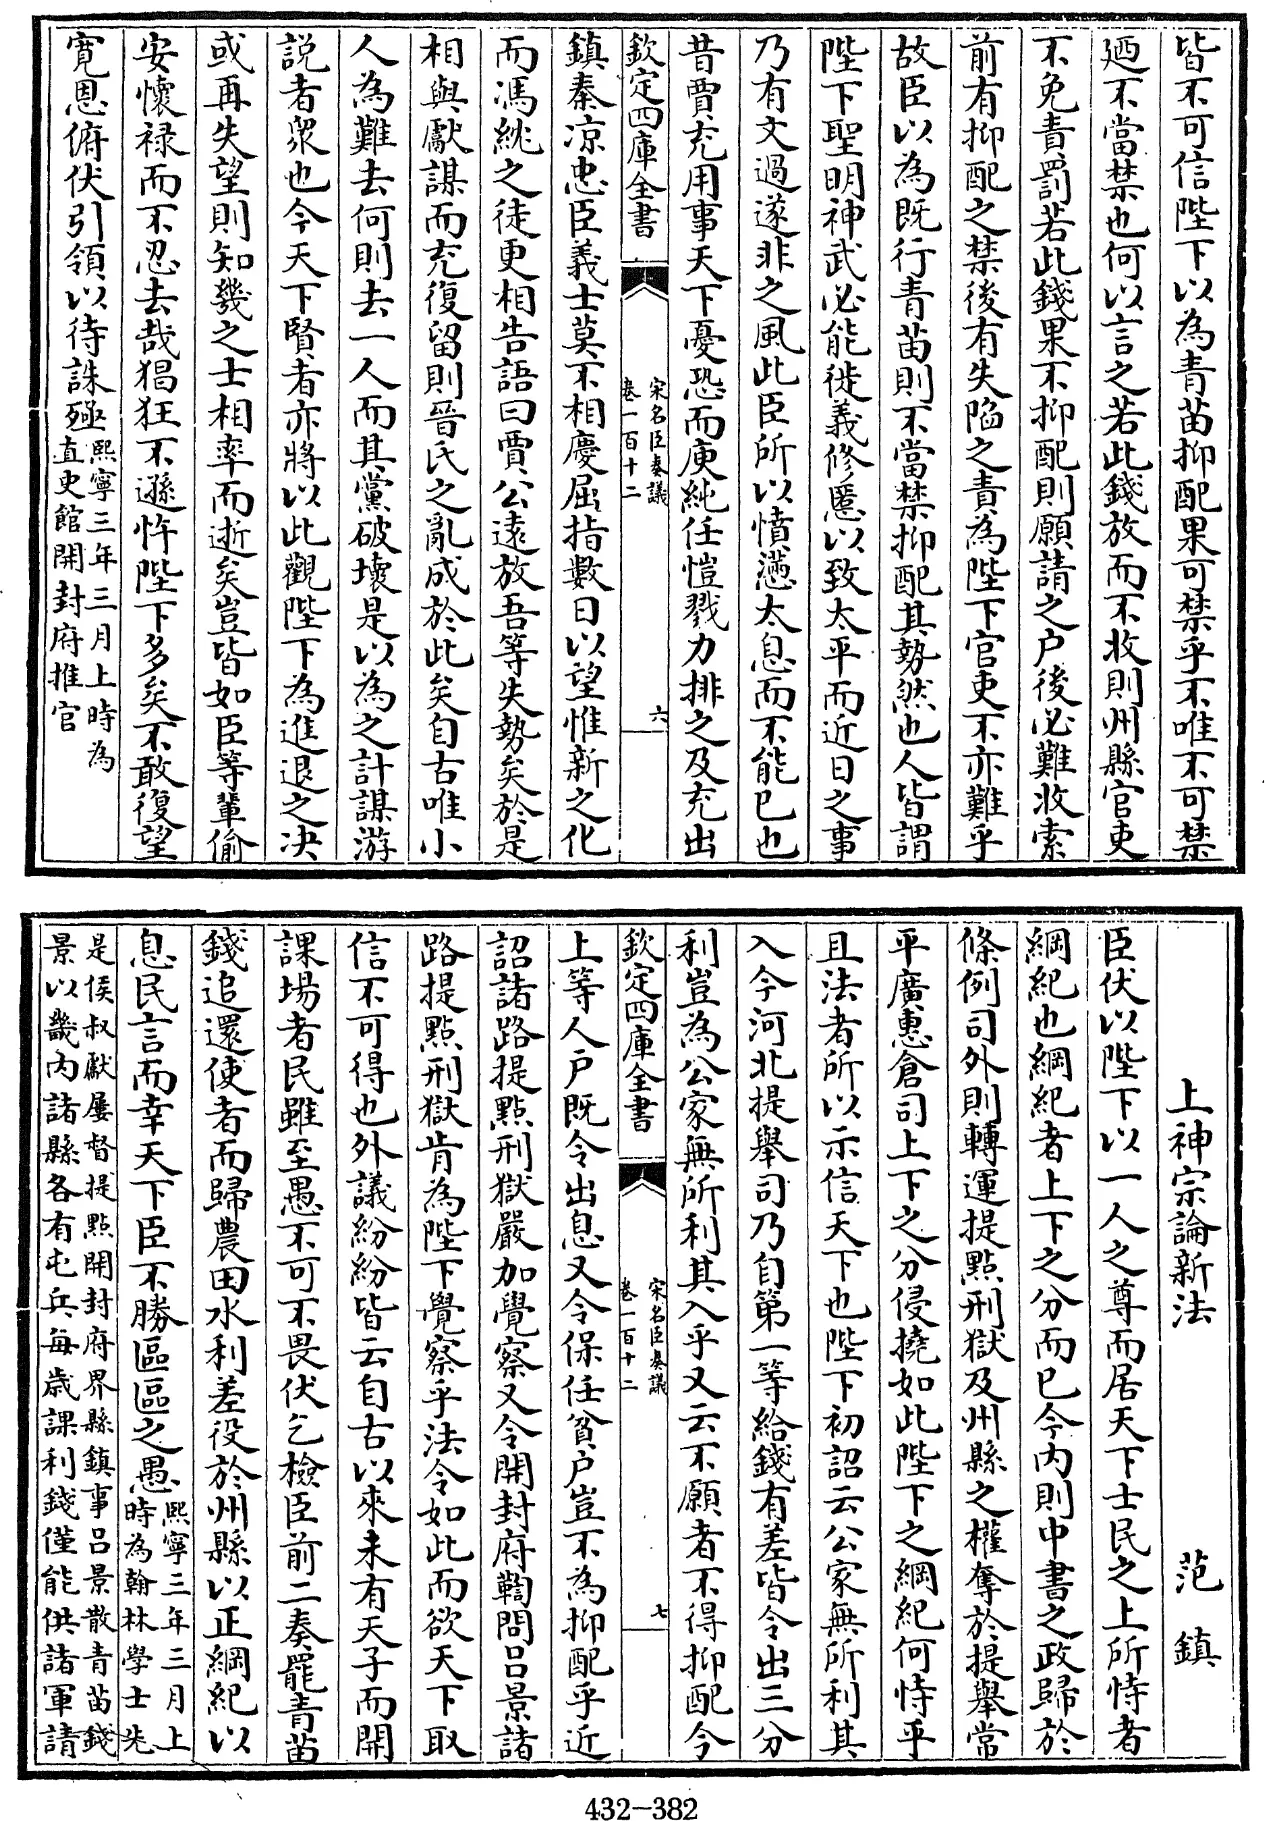 皆不可信陛下以為青苗抑配果可禁乎不唯不可禁
廼不當禁也何以言之若此錢放而不收則州縣官吏
不免責罰若此錢果不抑配則願請之户後必難收索
前有抑配之禁後有失陷之責為陛下官吏不亦難乎
故臣以為既行青苗則不當禁抑配其勢然也人皆謂
陛下聖明神武必能徙義修慝以致太平而近日之事
乃有文過遂非之風此臣所以憤懣太息而不能已也
昔賈充用事天下憂恐而庾純任愷戮力排之及充出
欽定四庫全書
宋名臣奏議
卷一百十二
六
鎮秦凉忠臣義士莫不相慶屈指數日以望惟新之化
而馮紞之徒更相告語曰賈公遠放吾等失勢矣於是
相與獻謀而充復留則晉氏之亂成於此矣自古唯小
人為難去何則去一人而其黨破壞是以為之計謀游
説者衆也今天下賢者亦將以此觀陛下為進退之决
或再失望則知幾之士相率而逝矣豈皆如臣等輩偷
安懷禄而不忍去哉猖狂不遜忤陛下多矣不敢復望
寛恩俯伏引領以待誅殛熙寧三年三月上時為
直史館開封府推官
上神宗論新法 范鎮
臣伏以陛下以一人之尊而居天下士民之上所恃者
綱紀也綱紀者上下之分而已今内則中書之政歸於
條例司外則轉運提點刑獄及州縣之權奪於提舉常
平廣惠倉司上下之分侵撓如此陛下之綱紀何恃乎
且法者所以示信天下也陛下初詔云公家無所利其
入今河北提舉司乃自第一等給錢有差皆令出三分
利豈為公家無所利其入乎又云不願者不得抑配今
欽定四庫全書
宋名臣奏議
卷一百十二
七
上等人户既令出息又令保任貧户豈不為抑配乎近
詔諸路提點刑獄嚴加覺察又令開封府鞫問吕景諸
路提點刑獄肯為陛下覺察乎法令如此而欲天下取
信不可得也外議紛紛皆云自古以來未有天子而開
課場者民雖至愚不可不畏伏乞檢臣前二奏罷青苗
錢追還使者而歸農田水利差役於州縣以正綱紀以
息民言而幸天下臣不勝區區之愚熙寧三年三月上
時為翰林學士先
是侯叔獻屢督提點開封府界縣鎮事吕景散青苗錢
景以畿内諸縣各有屯兵毎歲課利錢僅能供諸軍請
432-382